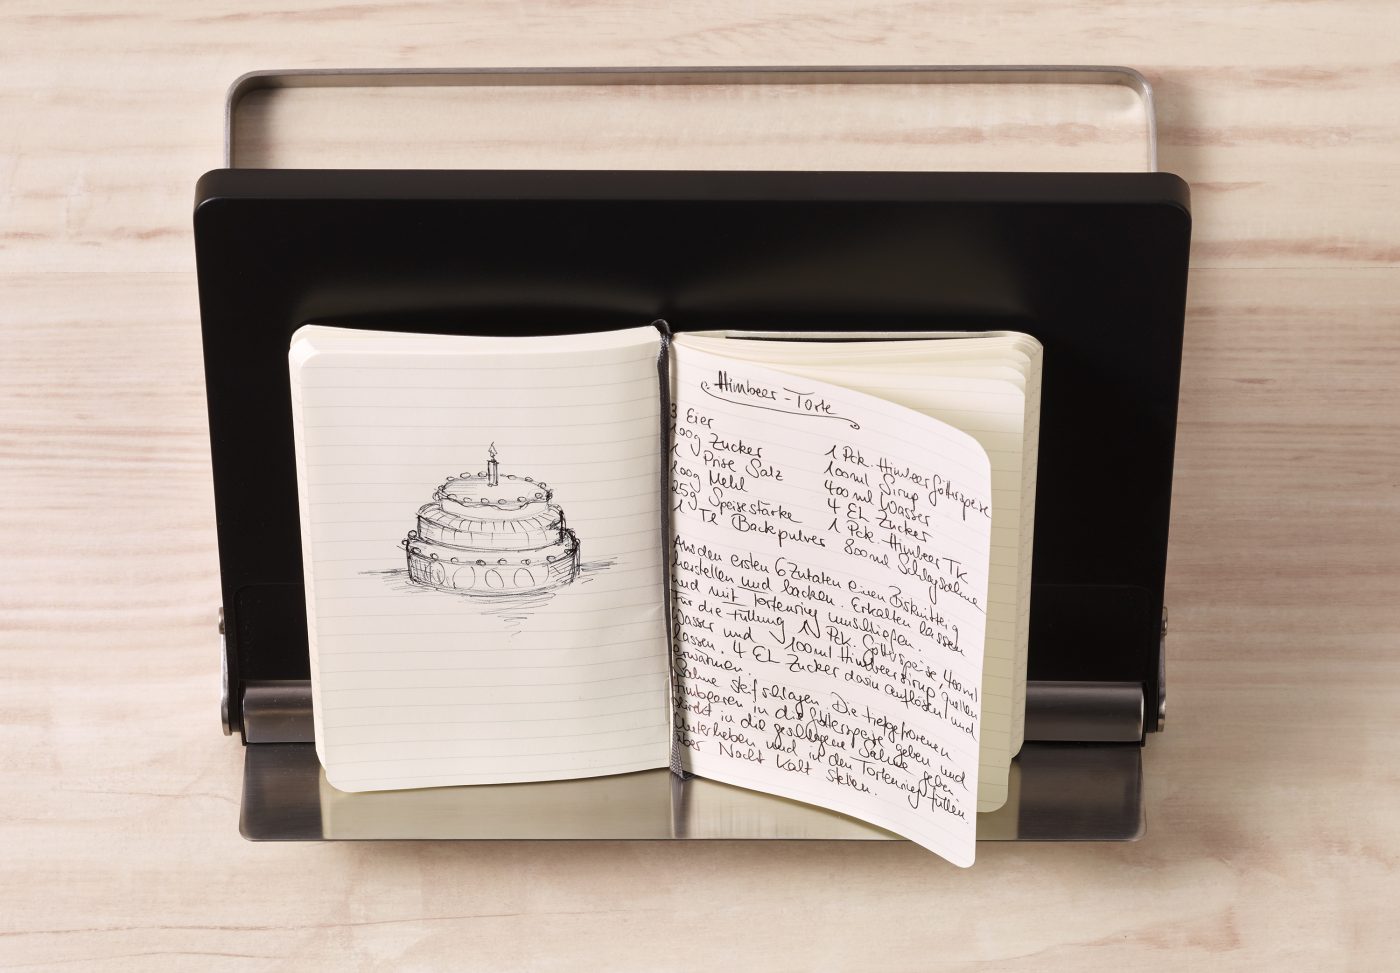 Himbeer-Torte
3 Eier
100g Zucker
1 Prise Salz
100g Mehl
25g Speisestärke
1 Tl Backpulver
1 Pck. Himbeergötterspeise
100ml Sirup
400ml Wasser
4 EL Zucker
1 Pck. Himbeer TK
800ml Schlagsahne
Aus den ersten 6 Zutaten einen Biskuitteig
herstellen und backen. Erkalten lassen
und mit Tortenring umschließen.
Für die Füllung 1 Pck. Götterspeise, 400ml
Wasser und 100ml Himbeersirup quellen
lassen. 4 EL Zucker darin auflösen und
erwärmen.
Sahne steif schlagen. Die tiefgefrorenen
Himbeeren in die Götterspeise geben und
direkt in die geschlagene Sahne geben.
Unterheben und in den Tortenring füllen.
über Nacht kalt stellen.